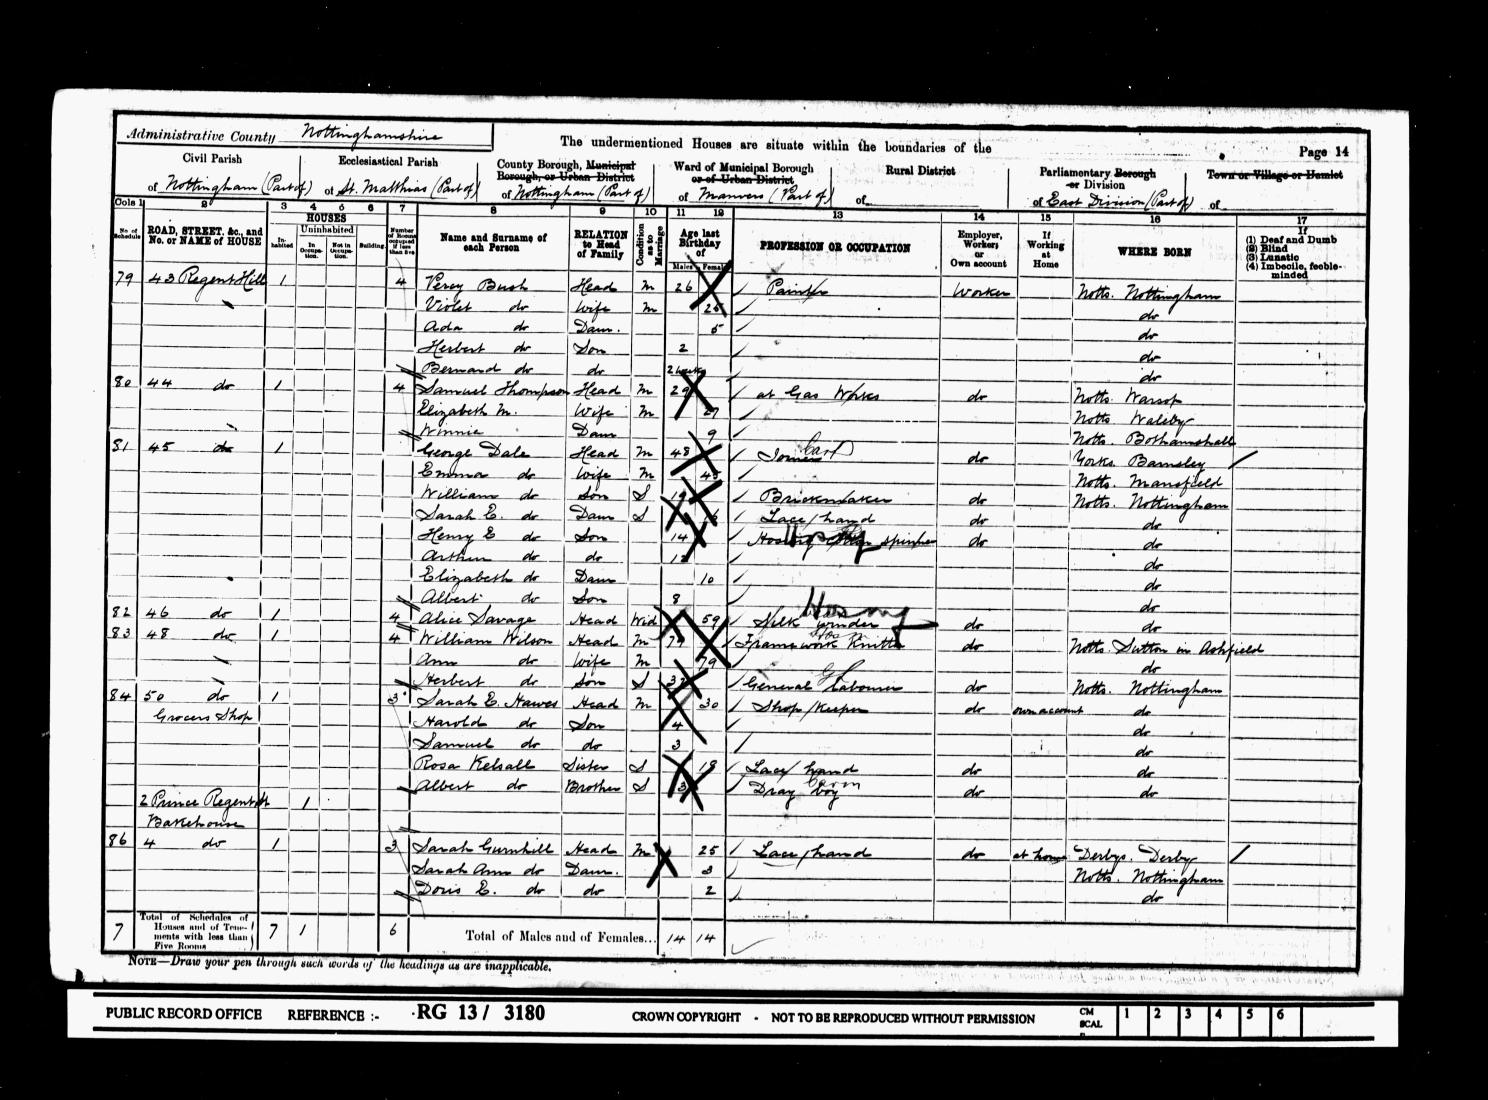 Administrative County Nottinghamshire
The undermentioned Houses are situate within the boundaries of the
Page 14
Civil Parish
of Nottingham (Part of)
Ecclesiastical Parish
of St. Matthias (Part of)
County Borough, Municipal Borough, or Urban District
of Nottingham (Part of)
Ward of Municipal Borough or of Urban District
of Manvers (Part of)
Rural District
of
Parliamentary Borough or Division
of East Division (Part of)
Town or Village or Hamlet
of
Cols 1 2 3 4 5 6 7 8 9 10 11 12 13 14 15 16 17
No. of Schedule
ROAD, STREET, &c., and No. or NAME of HOUSE
HOUSES
Inhabited
Uninhabited
In Occupation.
Not in Occupation.
Building
Number of Rooms occupied if less than five
Name and Surname of each Person
RELATION to Head of Family
Condition as to Marriage
Age last Birthday of
Males Females
PROFESSION OR OCCUPATION
Employer, Worker, or Own account
If Working at Home
WHERE BORN
If (1) Deaf and Dumb (2) Blind (3) Lunatic (4) Imbecile, feeble-minded
79 43 Regent Hill 1 4 Percy Bush Head M 26 Painter Worker Notts. Nottingham
Violet do Wife M 25 do
Ada do Daur. 5 do
Herbert do Son 2 do
Bernard do do 2 weeks do
80 44 do 1 4 Samuel Thompson Head M 29 at Gas Works do Notts. Warsop
Elizabeth M. Wife M 27 Notts Walesby
Winnie Daur 9 Notts. Bothamshall
81 45 do 1 George Dale Head M 48 Joiner do Yorks. Barnsley
Emma do Wife M 45 Notts. Mansfield
William do Son S 19 Brickmaker do Notts. Nottingham
Sarah E. do Daur S 16 Lace hand do do
Henry E do Son 14 Hosiery spinner do do
Arthur do do 12 do
Elizabeth do Daur 10 do
Albert do Son 8 do
82 46 do 1 4 Alice Savage Head Wid 59 Silk winder Hosiery do do
83 48 do 1 4 William Wilson Head M Framework Knitter do Notts. Sutton in Ashfield
Ann do Wife M 79 do
Herbert do Son S 37 General Labourer do Notts. Nottingham
84 50 do 1 3 Sarah E. Hawes Head M 30 Shop keeper do own account do
Grocers Shop Harold do Son 4 do
Samuel do do 3 do
Rosa Kelsall Sister S 18 Lace hand do do
Albert do Brother S Dray boy do do
2 Prince Regent St 1
Bakehouse
86 4 do 1 3 Sarah Gurnhill Head M 25 Lace hand do at home Derbys. Derby
Sarah Ann do Daur. 3 Notts. Nottingham
Doris E. do do 2 do
7 Total of Schedules of Houses and of Tenements with less than Five Rooms 7 1 6 Total of Males and of Females... 14 14
NOTE—Draw your pen through such words of the headings as are inapplicable.
PUBLIC RECORD OFFICE REFERENCE :- RG 13 / 3180 CROWN COPYRIGHT - NOT TO BE REPRODUCED WITHOUT PERMISSION
CM SCAL 1 2 3 4 5 6